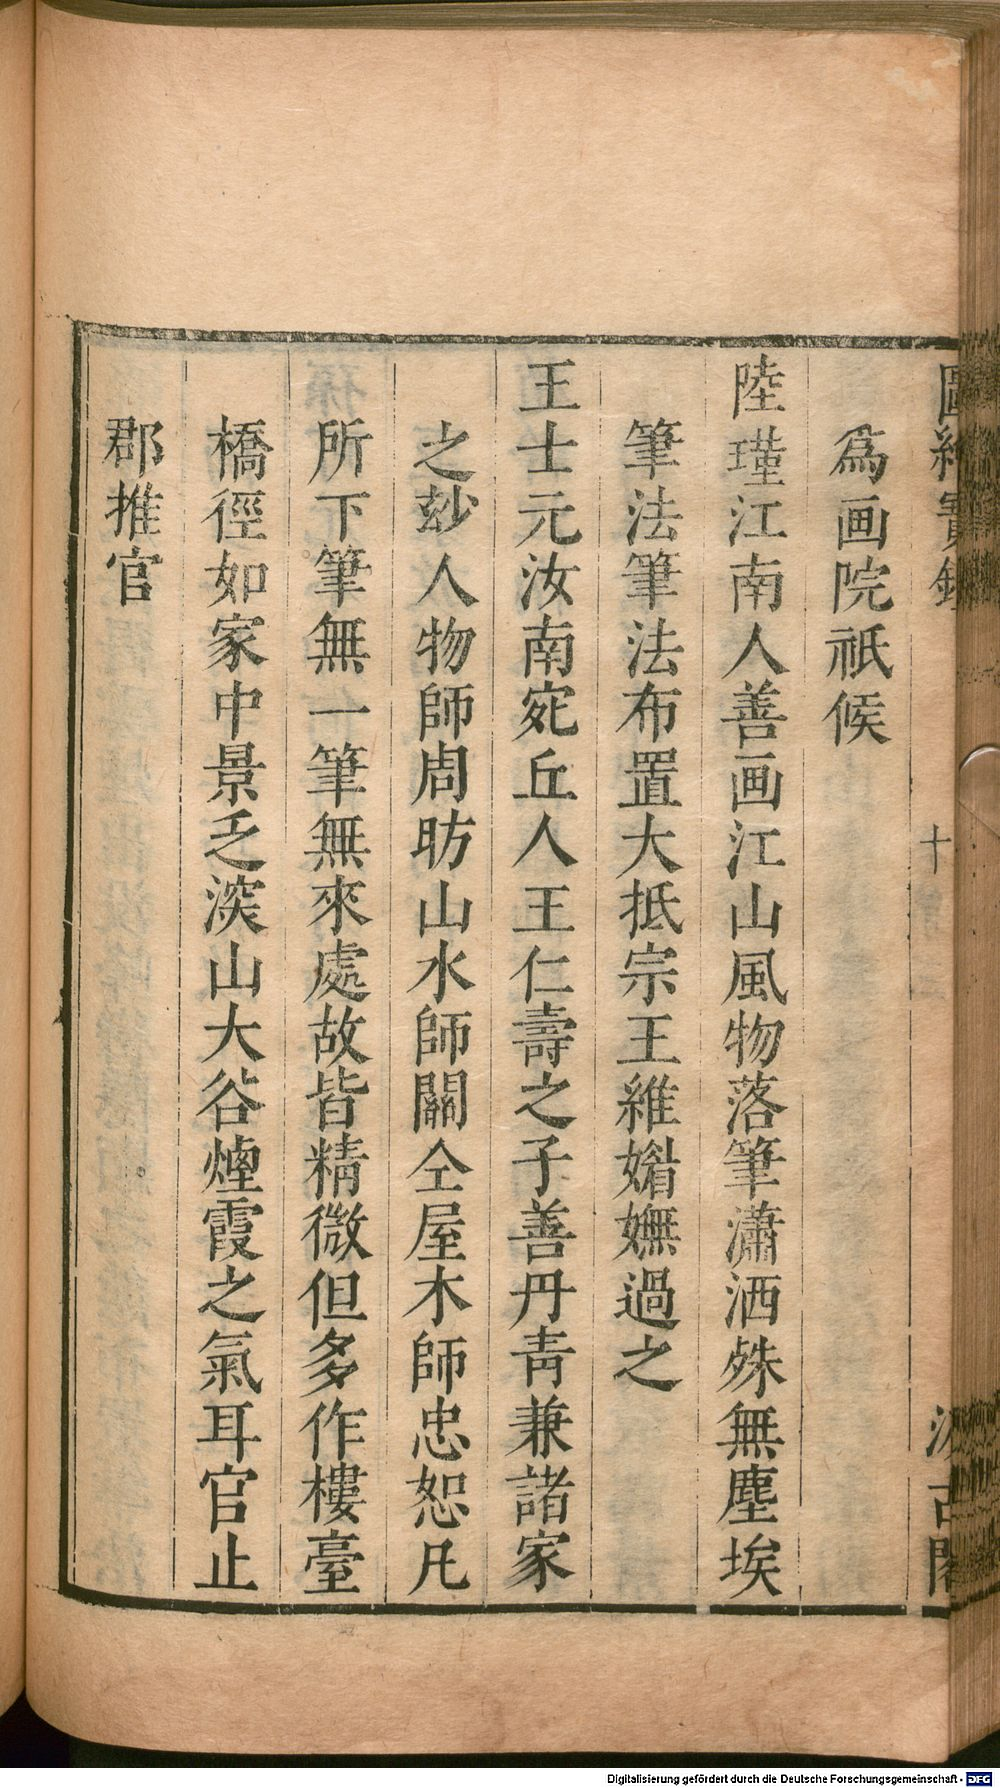 圖繪寶鑑
十
汲古閣
爲画院祇候
陸瑾江南人善画江山風物落筆瀟洒殊無塵埃
筆法筆法布置大抵宗王維媚嫵過之
王士元汝南宛丘人王仁壽之子善丹靑兼諸家
之玅人物師周昉山水師關仝屋木師忠恕凡
所下筆無一筆無來處故皆精微但多作樓臺
橋徑如家中景乏深山大谷煙霞之氣耳官止
郡推官
Digitalisierung gefördert durch die Deutsche Forschungsgemeinschaft - DFG